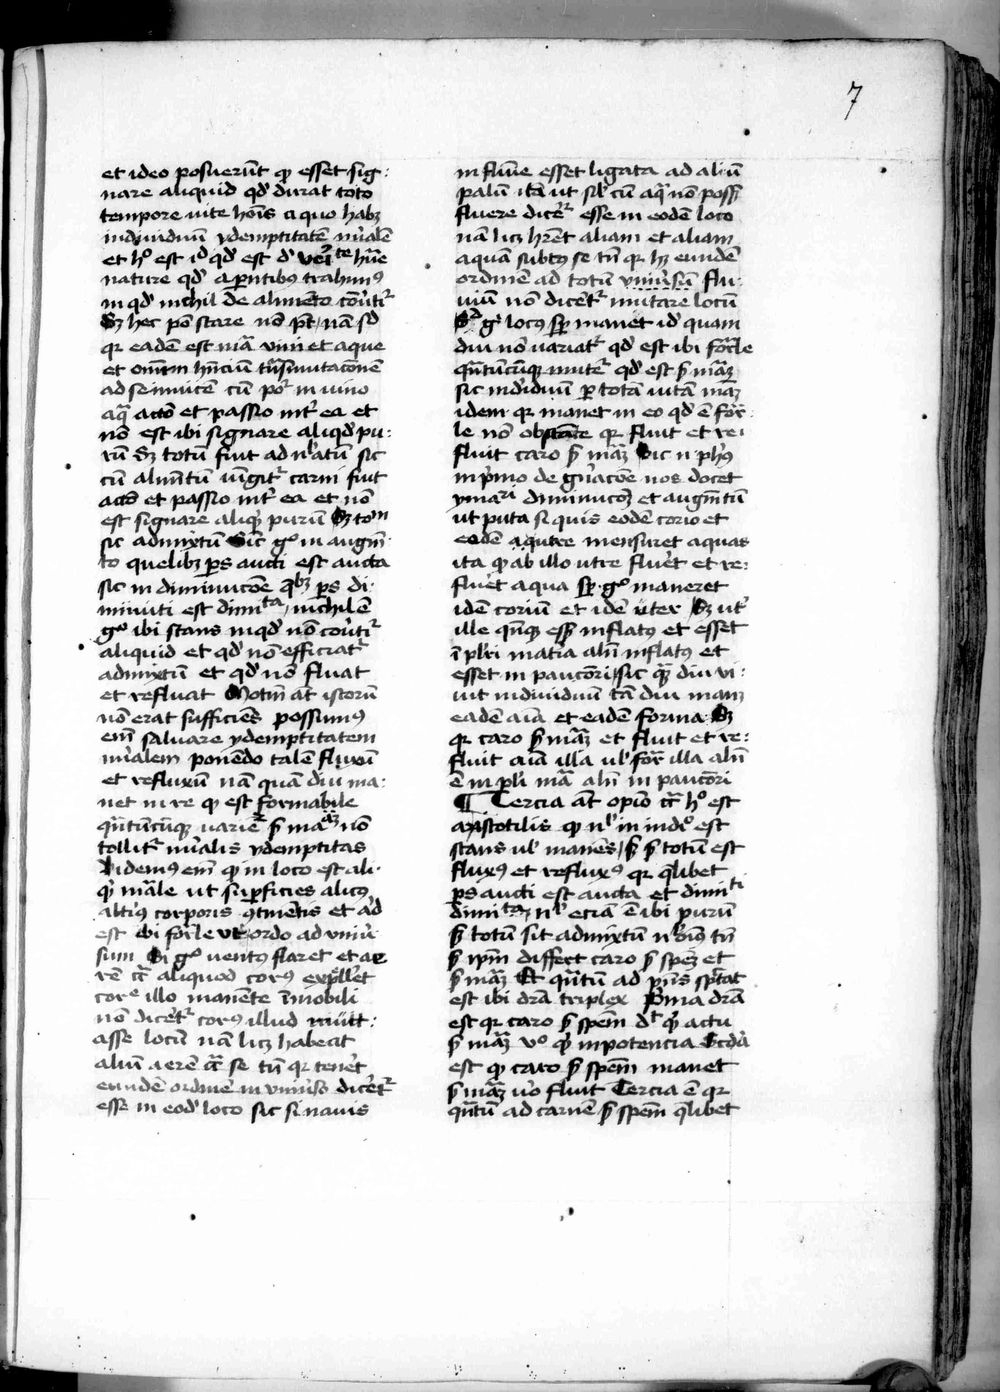 7
et ideo posuerūt qp esset sig:
nare aliquid qd' durat toto
tempore uite hoīs a quo habȝ
indiuiduū ydemptitatē nūalē
et hͦ est id qd' est d' hūe
nature qd' a pētibus trahimus
in qd' nichil de alimēto cōūtit᷑
Sȝ hec pōt stare nō pt nā sd'
qr eadē est mā vini et aque
et trāsmutacōnē
ad se inuicē cū poī in uino
aq̄ accō et passio int' ea et
nō est ibi signare aliqd' pu:
rū Sȝ totū fiut ad sic
cū alimētū iūgit᷑ carni fiut
accō et passio int' ea et nō
est signare aliqd' purū Sȝ totū
sic admixtū Sic gͦ in augm̄:
to quelibȝ ps aucti est aucta
sic in diminucōne qlibȝ ps di:
minuti est dimita, nichil ē
gͦ ibi stans in qd' nō cōūtit᷑
aliquid et qd' nō efficiat᷑
admixtū et qd' nō fluat
et refluat Motiū āt istorū
nō erat sufficiēs possumus
em̄ saluare ydemptitatem
nūalem ponēdo talē fluxū
et refluxū nā quādiu ma:
net in re qp est formabile
qn̄tūcūqȝ uariet᷑ s' māȝ nō
tollit᷑ nūalis ydemptitas
Videmus em̄ qp in loco est ali:
qd' māle ut supficies alicus
altius corporis 9tinētis et ad'
est ibi forāle ut ordo ad uniū:
sum Si gͦ uentus flaret et ae
rē cā aliquod corpus expelleret
corpe illo manēte īmobili
nō dicēt᷑ corpus illud mutt:
asse locū nā licȝ haberet
aliū aerē cā se tn̄ qr tenet
eundē ordinē in uniūso dicēt᷑
esse in eod' loco sic si nauis
in fluuie esset ligata ad aliū
palū ita ut sil' cū aq̄ nō poss̄
fluere dicēt᷑ esse in eodē loco
nā licȝ hret aliam et aliam
aquam subtus se tn̄ qr hȝ eundē
ordinē ad totū uniūsū flu:
uiū nō dicēt᷑ mutare locū
Sȝ gͦ locus sp manet id' quam
diu nō uariat᷑ qd' est ibi forāle
qn̄tūcūqȝ mutet᷑ qd' est s' māȝ
sic indiuiduū p totā uitā māȝ
idem qr manet in eo qd' ē for̄:
le nō obstante qr fluit et re:
fluit caro s' māȝ Sic n̄ phus
in pmo de gn̄acōe nos docet
ymari diminucōȝ et augm̄tū
ut puta si quis eodē corio et
eodē autre mensuret aquas
ita qp ab illo utre fluēt et re:
fluēt aqua sp gͦ maneret
idē coriū et idē uter Sȝ ut'
ille qn̄qȝ ess̄ inflatus et esset
ī pl'ri matīa aln̄ inflatus et
esset in paucōri, sic qȝdiu ui:
uit indiuiduū tādiu manȝ
eadē aīa et eadē forma Sȝ
qr caro s' māȝ et fluit et re:
fluit aīa illa ul' for̄ illa aln̄
ē in pl'i mā aln̄ in paucōri
¶ Tercia āt opīo cā hͦ est
aristotilis qp nl' in indͦ est
stans ul' manēs, s' totū est
fluxus et refluxus qr qlibet
ps aucti est aucta et dimiti
dimitaȝ nl' eciā ē ibi purū
s' totū sit admixtū tn̄
s' ipm̄ differt caro s' spēȝ et
s' māȝ Et qn̄tū ad pn̄s sp̄tat
est ibi dra triplex Pma dra
est qr caro s' spēm dr̄ qp actu
s' māȝ vͦ qp in potencia Scd'a
est qp caro s' spēm manet
s' māȝ uͦo fluit Tercia ē qr
qn̄tū ad carnē s' spēm qlibet